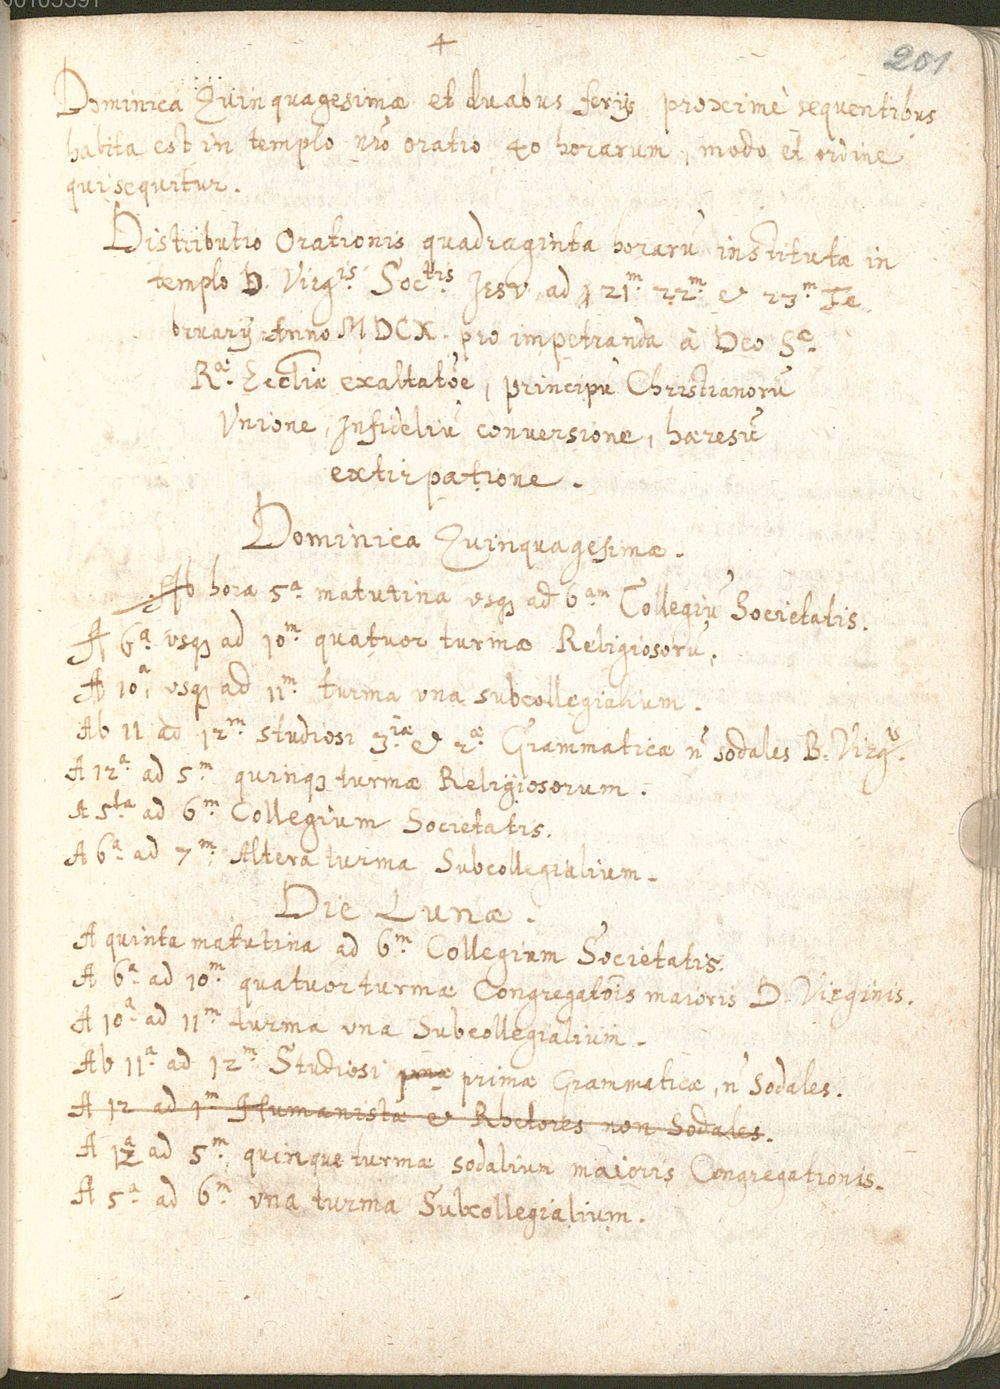 00103391
4
201
Dominica Quinquagesimæ et duabus ferijs proximè sequentibus
habita est in templo nr̃o oratio 40 horarum, modo et ordine
qui sequitur.
Distributio Orationis quadraginta horarũ institutæ in
templo D. Virgis Soctis Jesv, ad 21m 22m & 23m Fe
bruarij Anno MDCX. pro impetranda à Deo Sæ.
Ræ. Eccliæ exaltatõe, principũ Christianorũ
Vnione, Infideliũ conuersione, hæresũ
extirpatione.
Dominica Quinquagesimæ.
Ab hora 5a matutina vsq ad 6am Collegiũ Societatis.
A 6a vsq ad 10m quatuor turmæ Religiosorũ.
A 10a, vsq ad 11m turma vna subcollegialium.
Ab 11 ad 12m studiosi 3iæ & 2æ Grammaticæ ñ sodales B. Virgs.
A 12a ad 5m quinq turmæ Religiosorum.
A 5ta ad 6m Collegium Societatis.
A 6a ad 7m Altera turma Subcollegialium.
Die Lunæ.
A quinta matutina ad 6m Collegium Societatis.
A 6a ad 10m quatuor turmæ Congregatõis maioris D. Virginis.
A 10a ad 11m turma vna Subcollegialium.
Ab 11a ad 12m Studiosi pmæ primæ Grammaticæ, ñ Sodales.
A 12 ad 1m Humanistæ & Rhetores non Sodales.
A 12a ad 5m quinque turmæ sodalium maioris Congregationis.
A 5a ad 6m vna turma Subcollegialium.